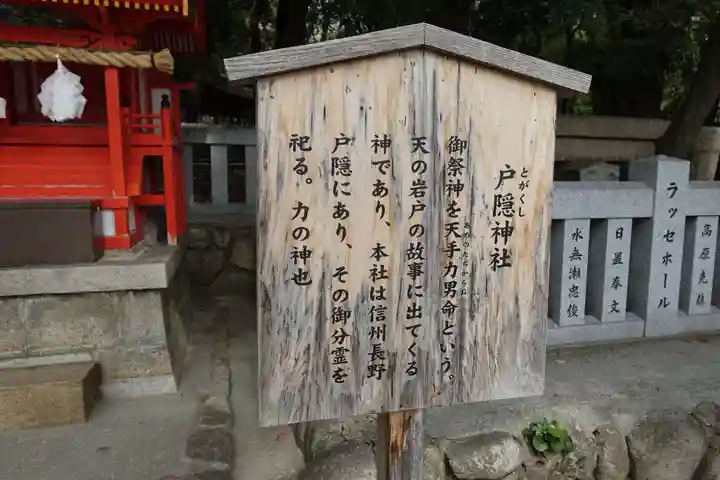 とがくし
戸隠神社
御祭神を天手力男命という。
あめのたぢからお
天の岩戸の故事に出てくる
神であり、本社は信州長野
戸隠にあり、その御分霊を
祀る。力の神也
高原克
ラッセホール
日置春文
水無瀬忠俊